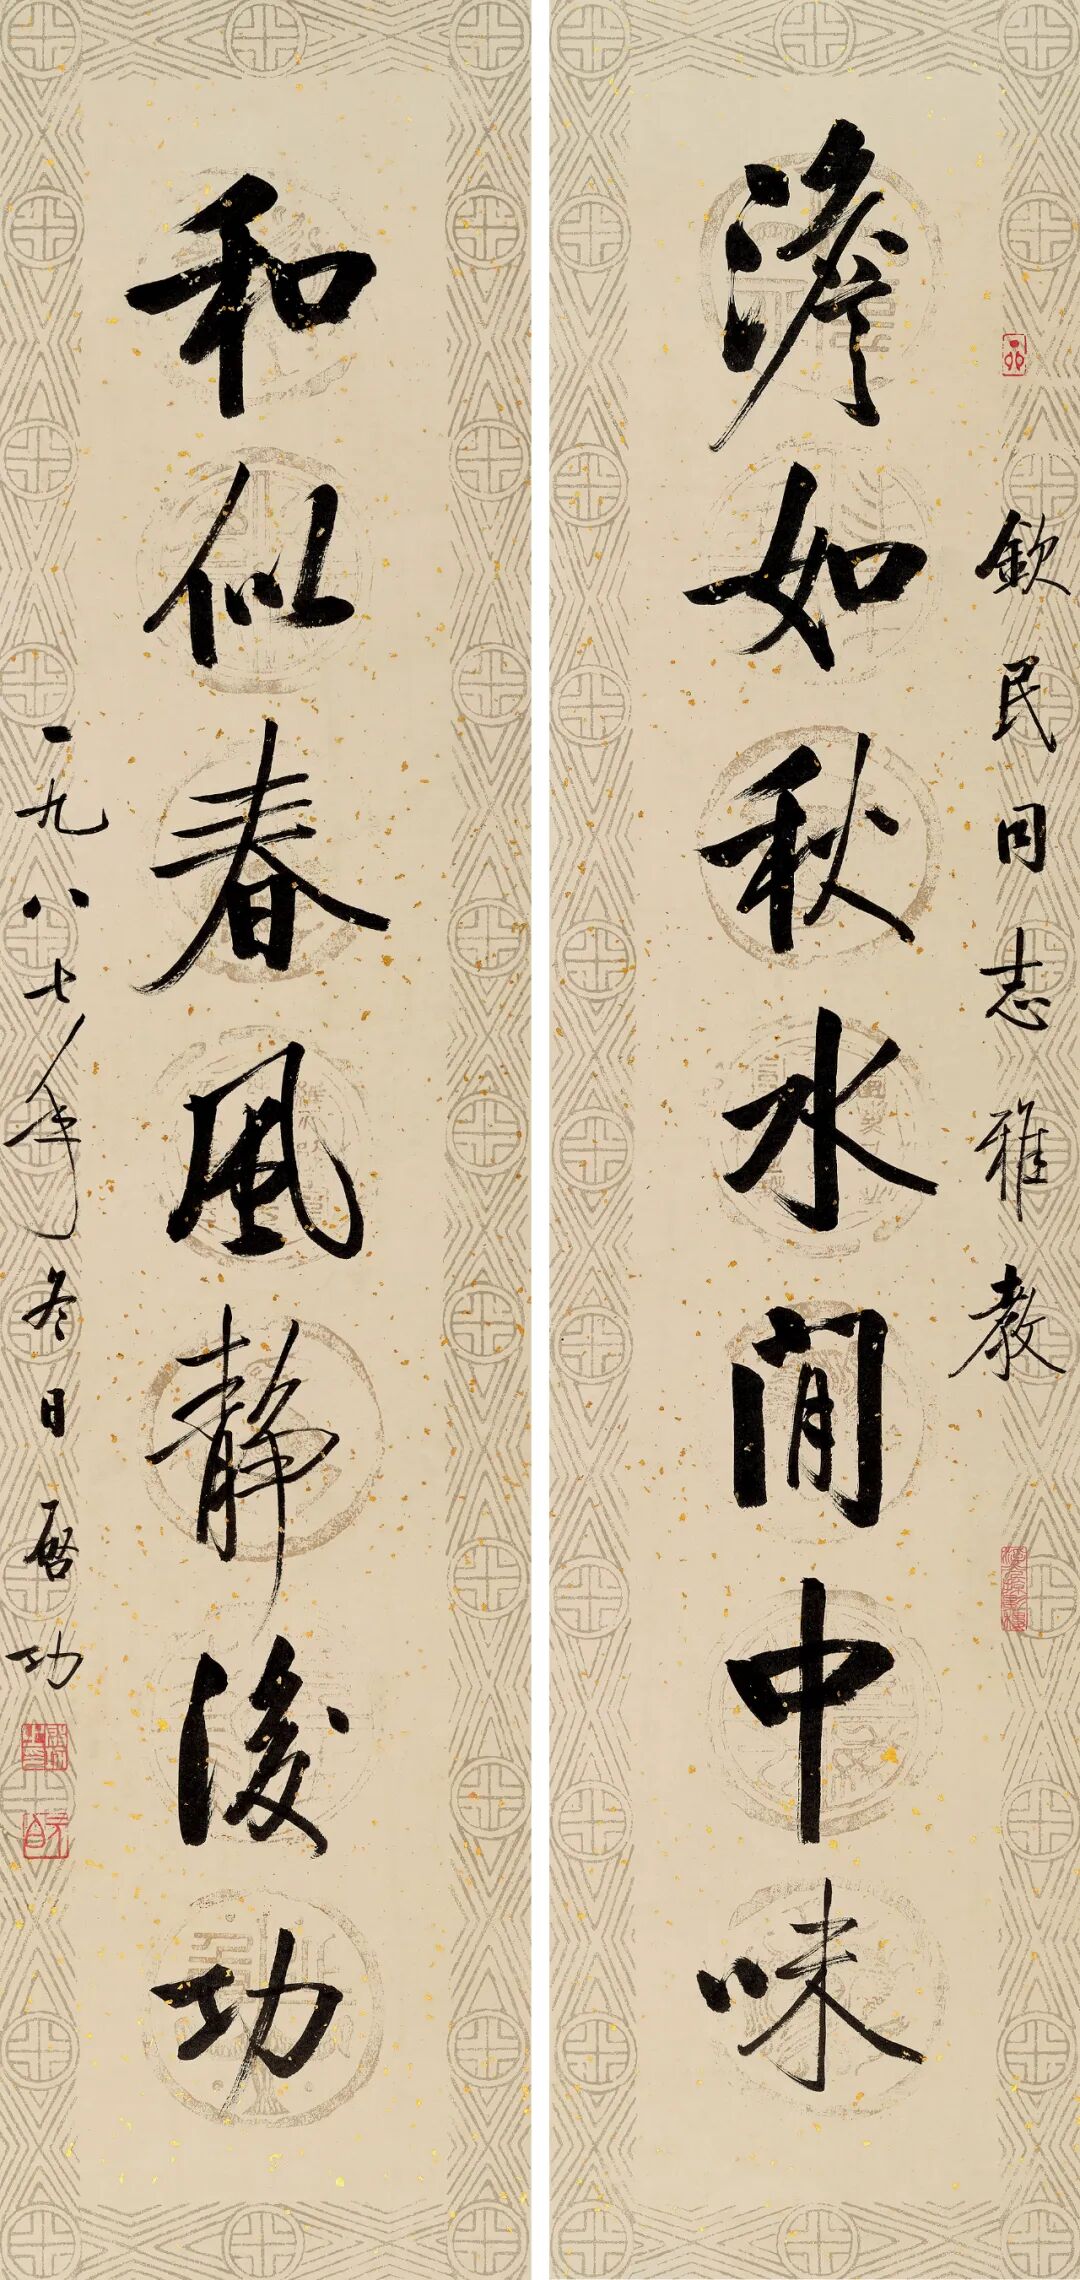 欽民同志雅教
澹如秋水閒中味
和似春風靜後功
一九八七年冬日啓功